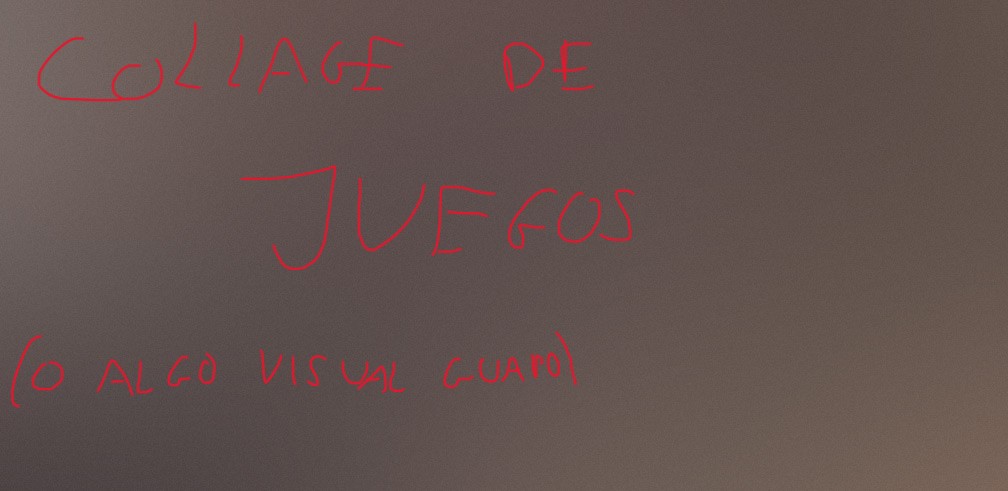 COLLAGE DE
JUEGOS
(O ALGO VISUAL GUAPO)